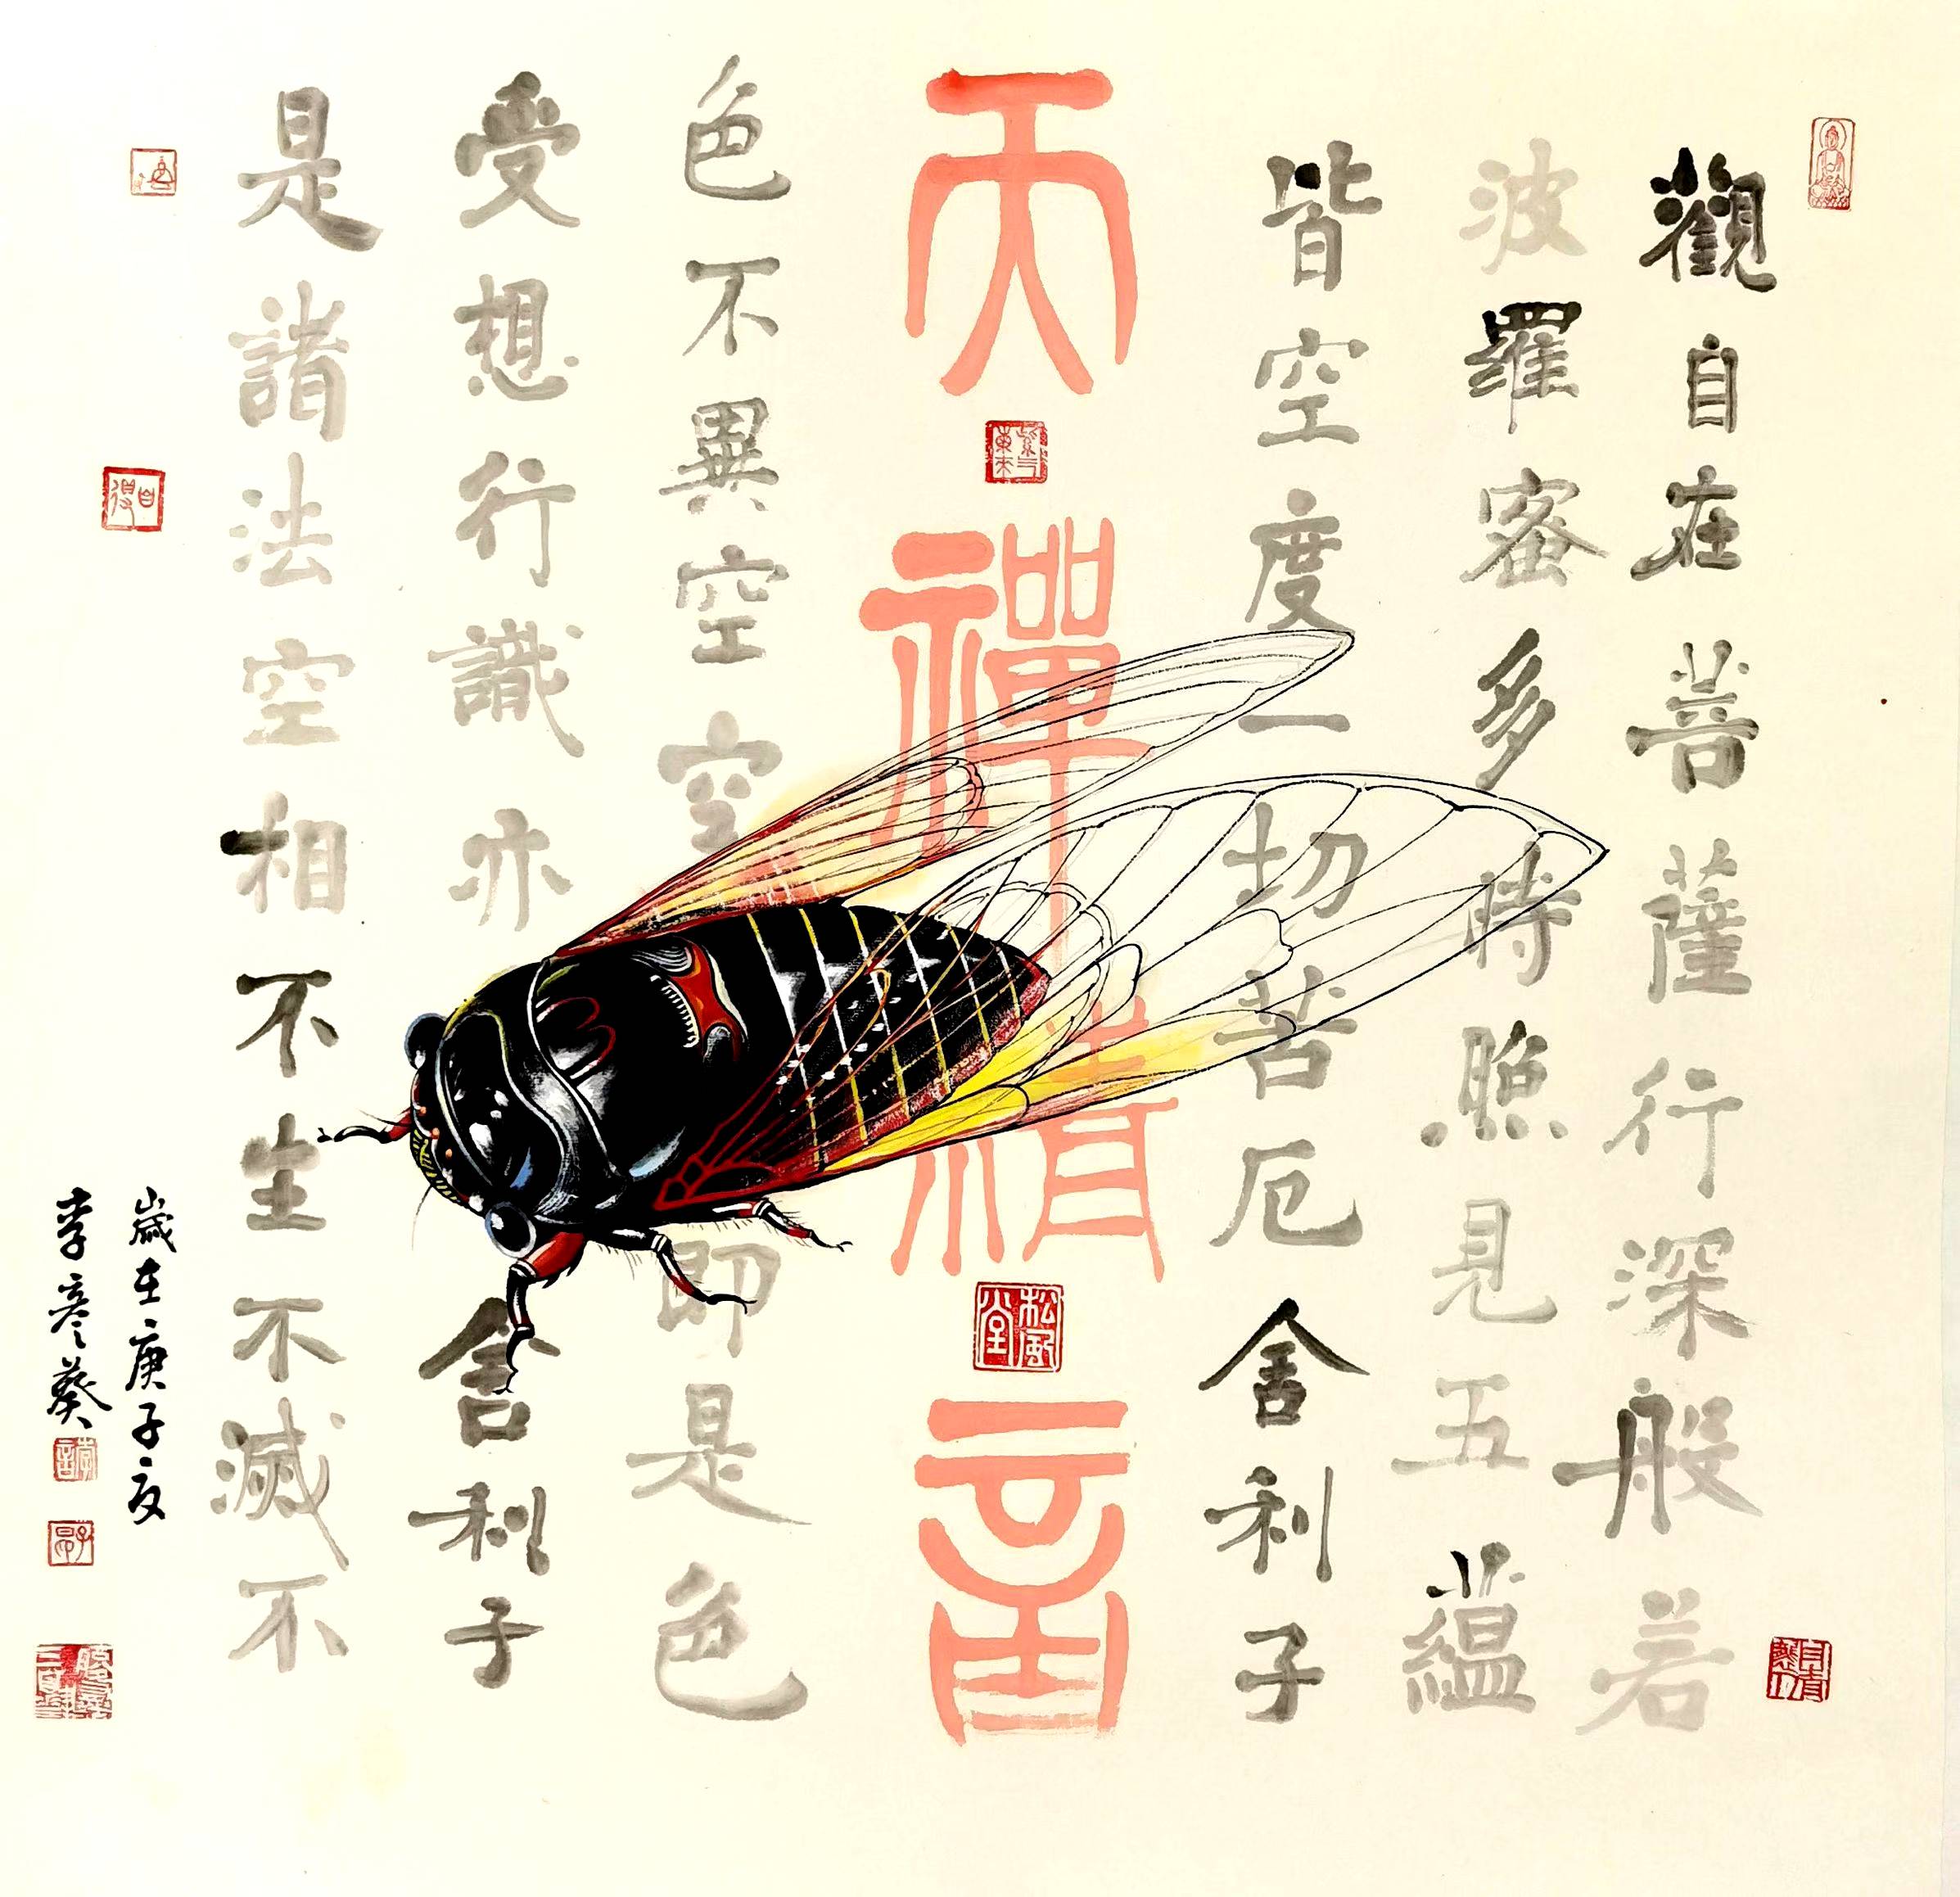 觀自在菩薩行深般若
波羅蜜多時照見五蘊
皆空度一切苦厄舍利子
天禪清音
紫气東來
松風堂
色不異空空即是色
受想行識亦舍利子
是諸法空相不生不滅不
歲在庚子夏
李彦葵
自得